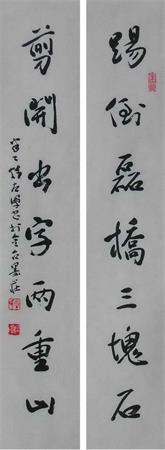 踢倒磊橋三塊石
剪開出字兩重山